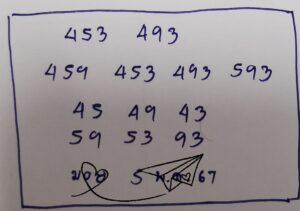 453 493
459 453 493 593
45 49 43
59 53 93
5 67